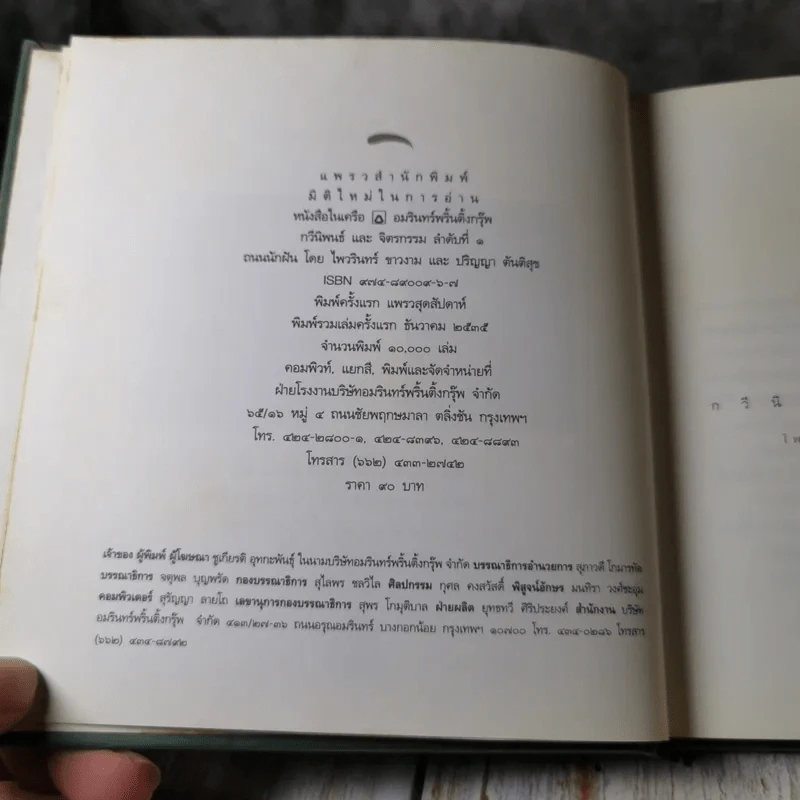 แพรวสำนักพิมพ์
มิติใหม่ในการอ่าน
หนังสือในเครือ อมรินทร์พริ้นติ้งกรุ๊พ
กวีนิพนธ์ และ จิตรกรรม ลำดับที่ ๑
ถนนนักฝัน โดย ไพวรินทร์ ขาวงาม และ ปริญญา ตันติสุข
ISBN ๙๗๔-๘๙๐๐๙-๖-๗
พิมพ์ครั้งแรก แพรวสุดสัปดาห์
พิมพ์รวมเล่มครั้งแรก ธันวาคม ๒๕๓๕
จำนวนพิมพ์ ๑๐,๐๐๐ เล่ม
คอมพิวท์, แยกสี, พิมพ์และจัดจำหน่ายที่
ฝ่ายโรงงานบริษัทอมรินทร์พริ้นติ้งกรุ๊พ จำกัด
๖๕/๑๖ หมู่ ๔ ถนนชัยพฤกษมาลา ตลิ่งชัน กรุงเทพฯ
โทร. ๔๒๔-๒๘๐๐-๑, ๔๒๔-๘๓๙๖, ๔๒๔-๘๘๙๓
โทรสาร (๖๖๒) ๔๓๓-๒๗๔๒
ราคา ๙๐ บาท
เจ้าของ ผู้พิมพ์ ผู้โฆษณา ชูเกียรติ อุทกะพันธุ์ ในนามบริษัทอมรินทร์พริ้นติ้งกรุ๊พ จำกัด บรรณาธิการอำนวยการ สุภาวดี โกมารทัต
บรรณาธิการ จตุพล บุญพรัด กองบรรณาธิการ สุไลพร ชลวิไล ศิลปกรรม กุศล คงสวัสดิ์ พิสูจน์อักษร มนทิรา วงศ์ชะอุ่ม
คอมพิวเตอร์ สุรัญญา ลายโถ เลขานุการกองบรรณาธิการ สุพร โกมุติบาล ฝ่ายผลิต ยุทธทวี ศิริประยงค์ สำนักงาน บริษัท
อมรินทร์พริ้นติ้งกรุ๊พ จำกัด ๔๑๓/๒๗-๓๖ ถนนอรุณอมรินทร์ บางกอกน้อย กรุงเทพฯ ๑๐๗๐๐ โทร. ๔๓๔-๐๒๘๖ โทรสาร
(๖๖๒) ๔๓๔-๘๗๙๒
กวีนิ
ไพ